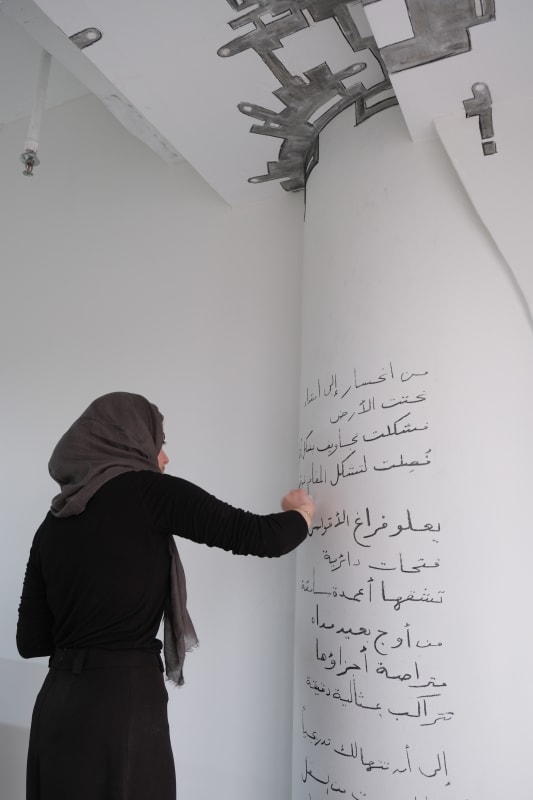 من انحسار إلى امتداد
نحتت الأرض
فتشكلت تجاويف بشكل
فُصِلت لتشكل المقام
يعلو فراغ الأقواس
فتحات دائرية
تشقها أعمدة سامقة
من أوج بعيد مداه
متراصة أجزاؤها
تتراكب بمثالية دقيقة
إلى أن تتهالك تدريجياً
من